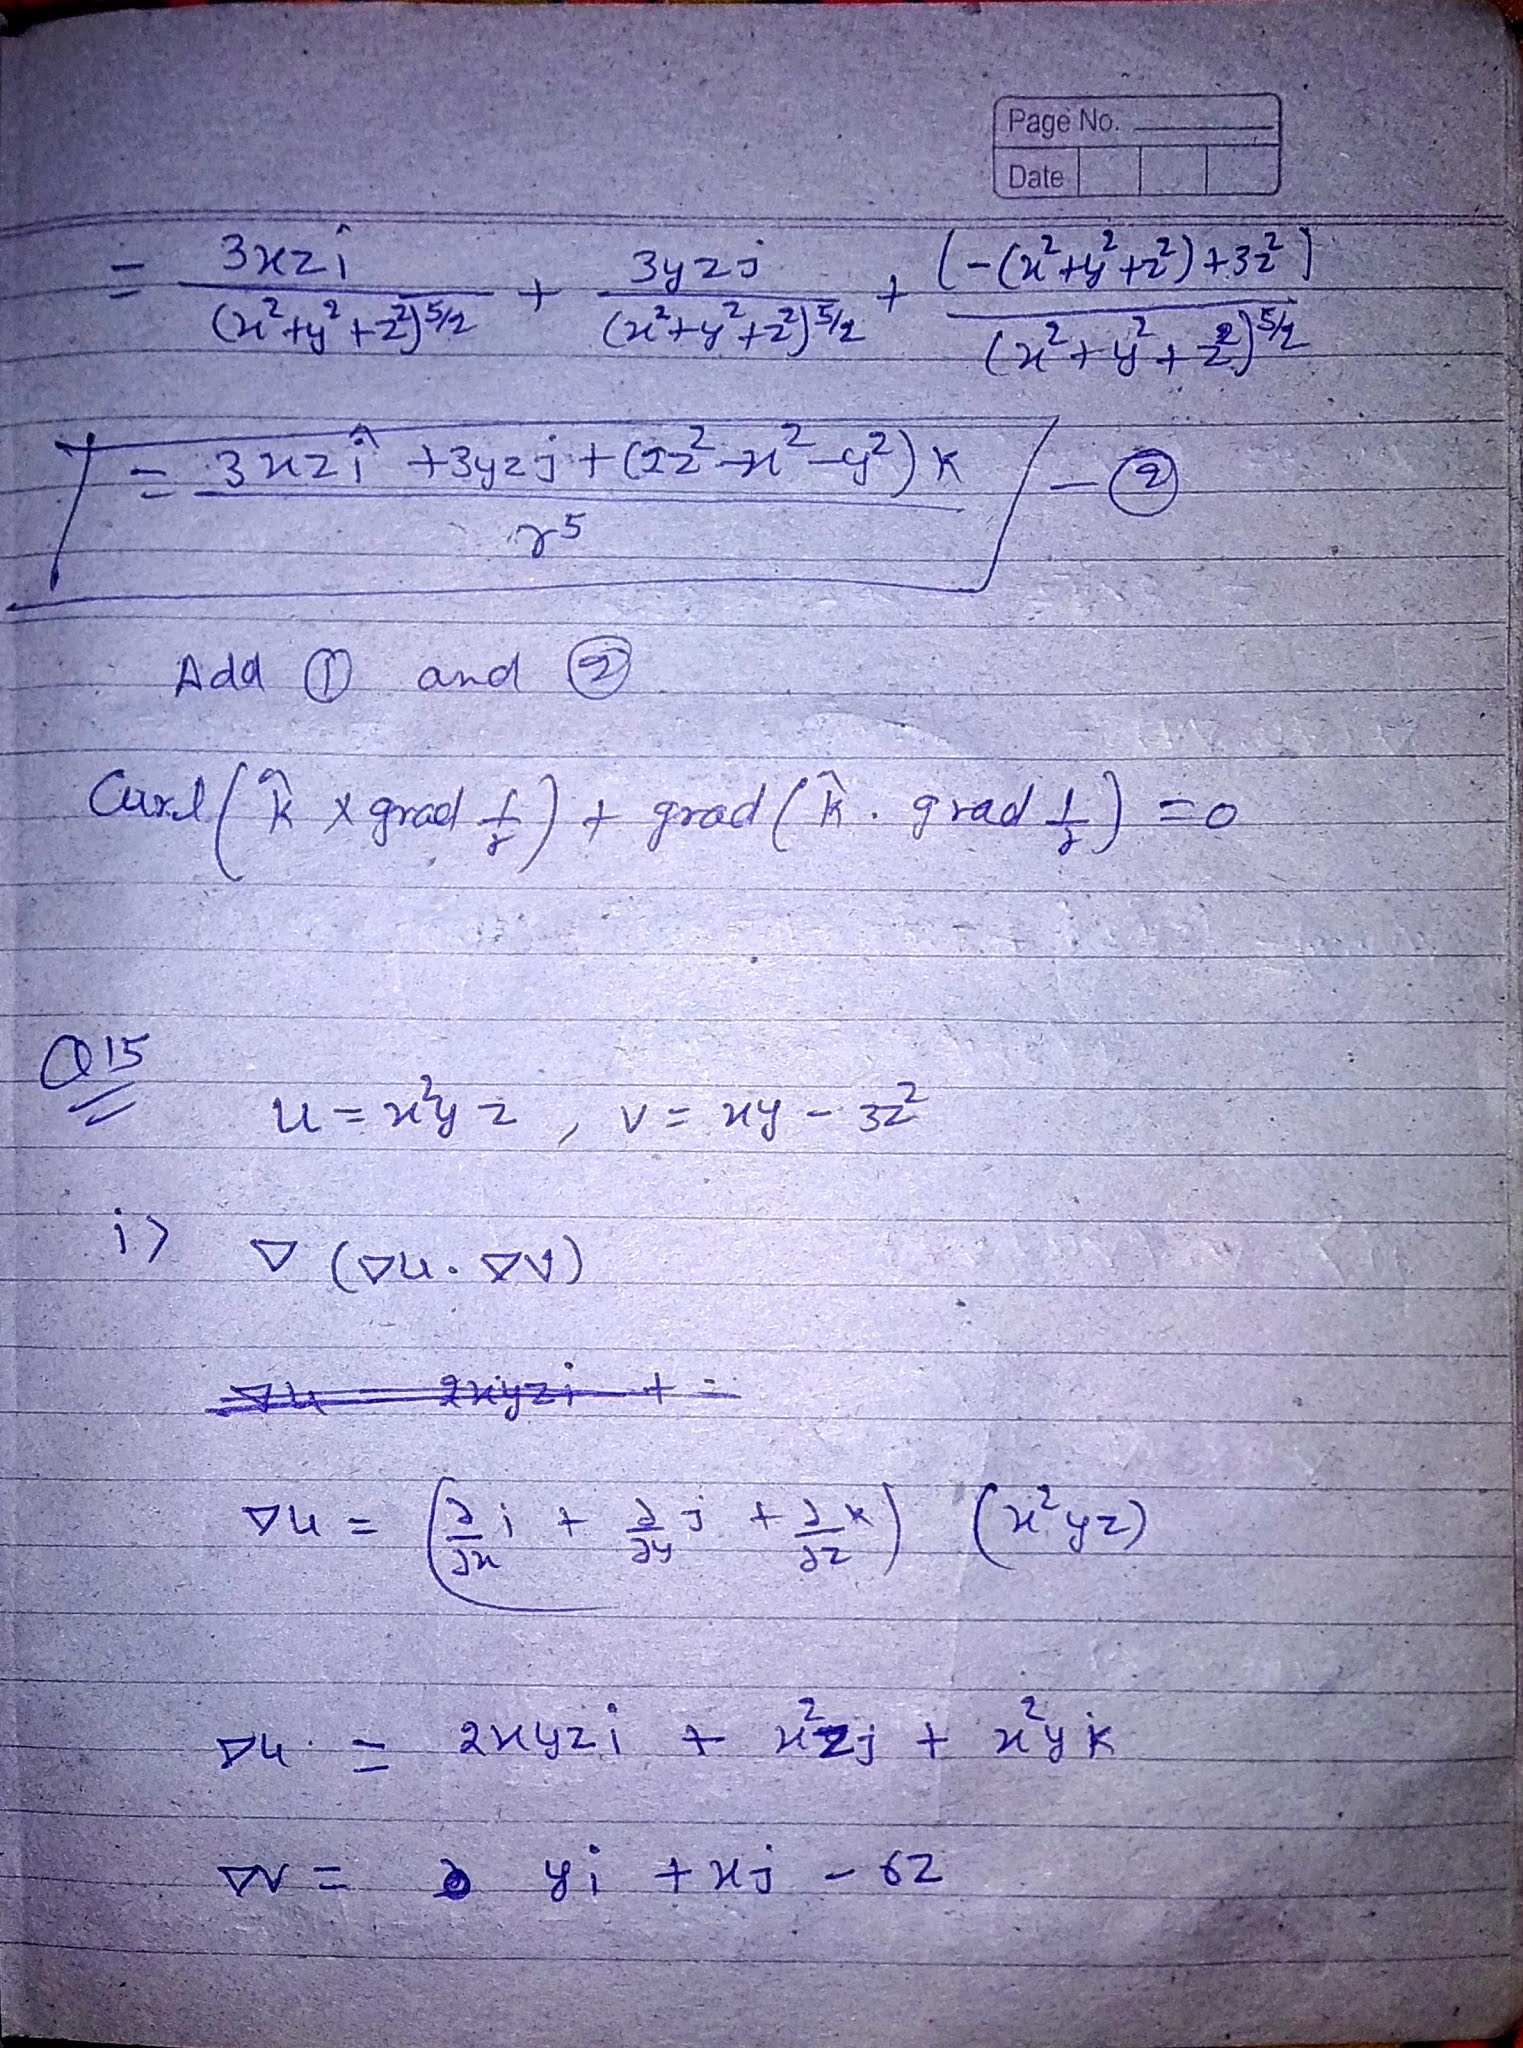 Page No.
Date
= 3xzî / (x²+y²+z²)^5/2 + 3yzj / (x²+y²+z²)^5/2 + (-(x²+y²+z²)+3z²) / (x²+y²+z²)^5/2
= 3xzî + 3yzj + (2z²-x²-y²)k / r⁵ - ②
Add ① and ②
Curl(k̂ x grad 1/r) + grad(k̂ . grad 1/r) = 0
Q15
u = x²yz , v = xy - 3z²
i> ∇(∇u.∇v)
∇u = 2xyzi + =
∇u = (∂/∂x i + ∂/∂y j + ∂/∂z k) (x²yz)
∇u = 2xyzi + x²zj + x²yk
∇v = yi + xj - 6z